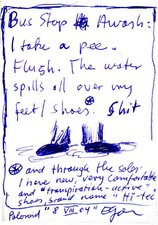 Bus Stop ⊛ Awash:
I take a pee.
Flush. The water
spills all over my
feet/shoes.⊛ Shit
⊛ and through the soles:
I have new, very comfortable
and "transpiration-active"
shoes, brand name "Hi-tec"
"8 VIII 04"